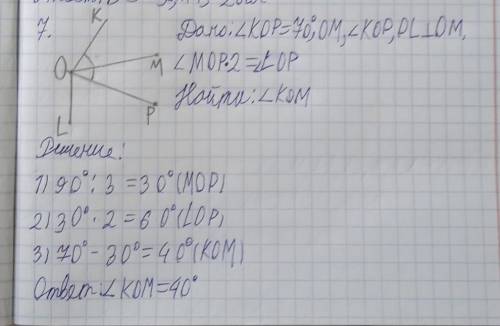 7.
K
O
M
P
L
Дано: ∠KOP=70°, OM, ∠KOP, OL⊥OM,
∠MOP·2=∠LOP
Найти: ∠KOM
Решение:
1) 90° : 3 = 30° (MOP)
2) 30° · 2 = 60° (LOP)
3) 70° - 30° = 40° (KOM)
Ответ: ∠KOM=40°